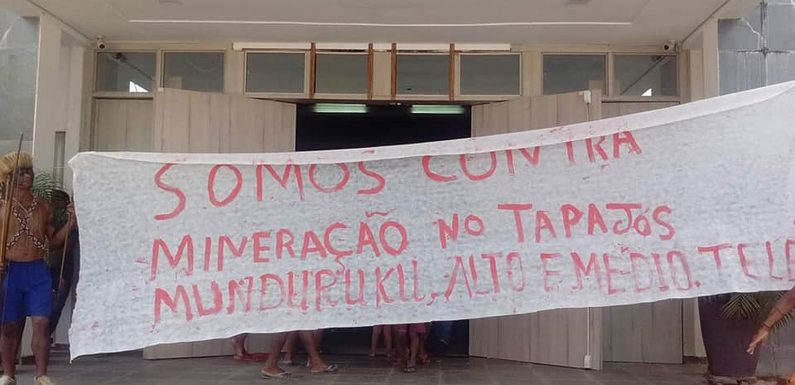 SOMOS CONTRA
MINERAÇÃO NO TAPAJÓS
MUNDURUKU, ALTO E MÉDIO. TELE